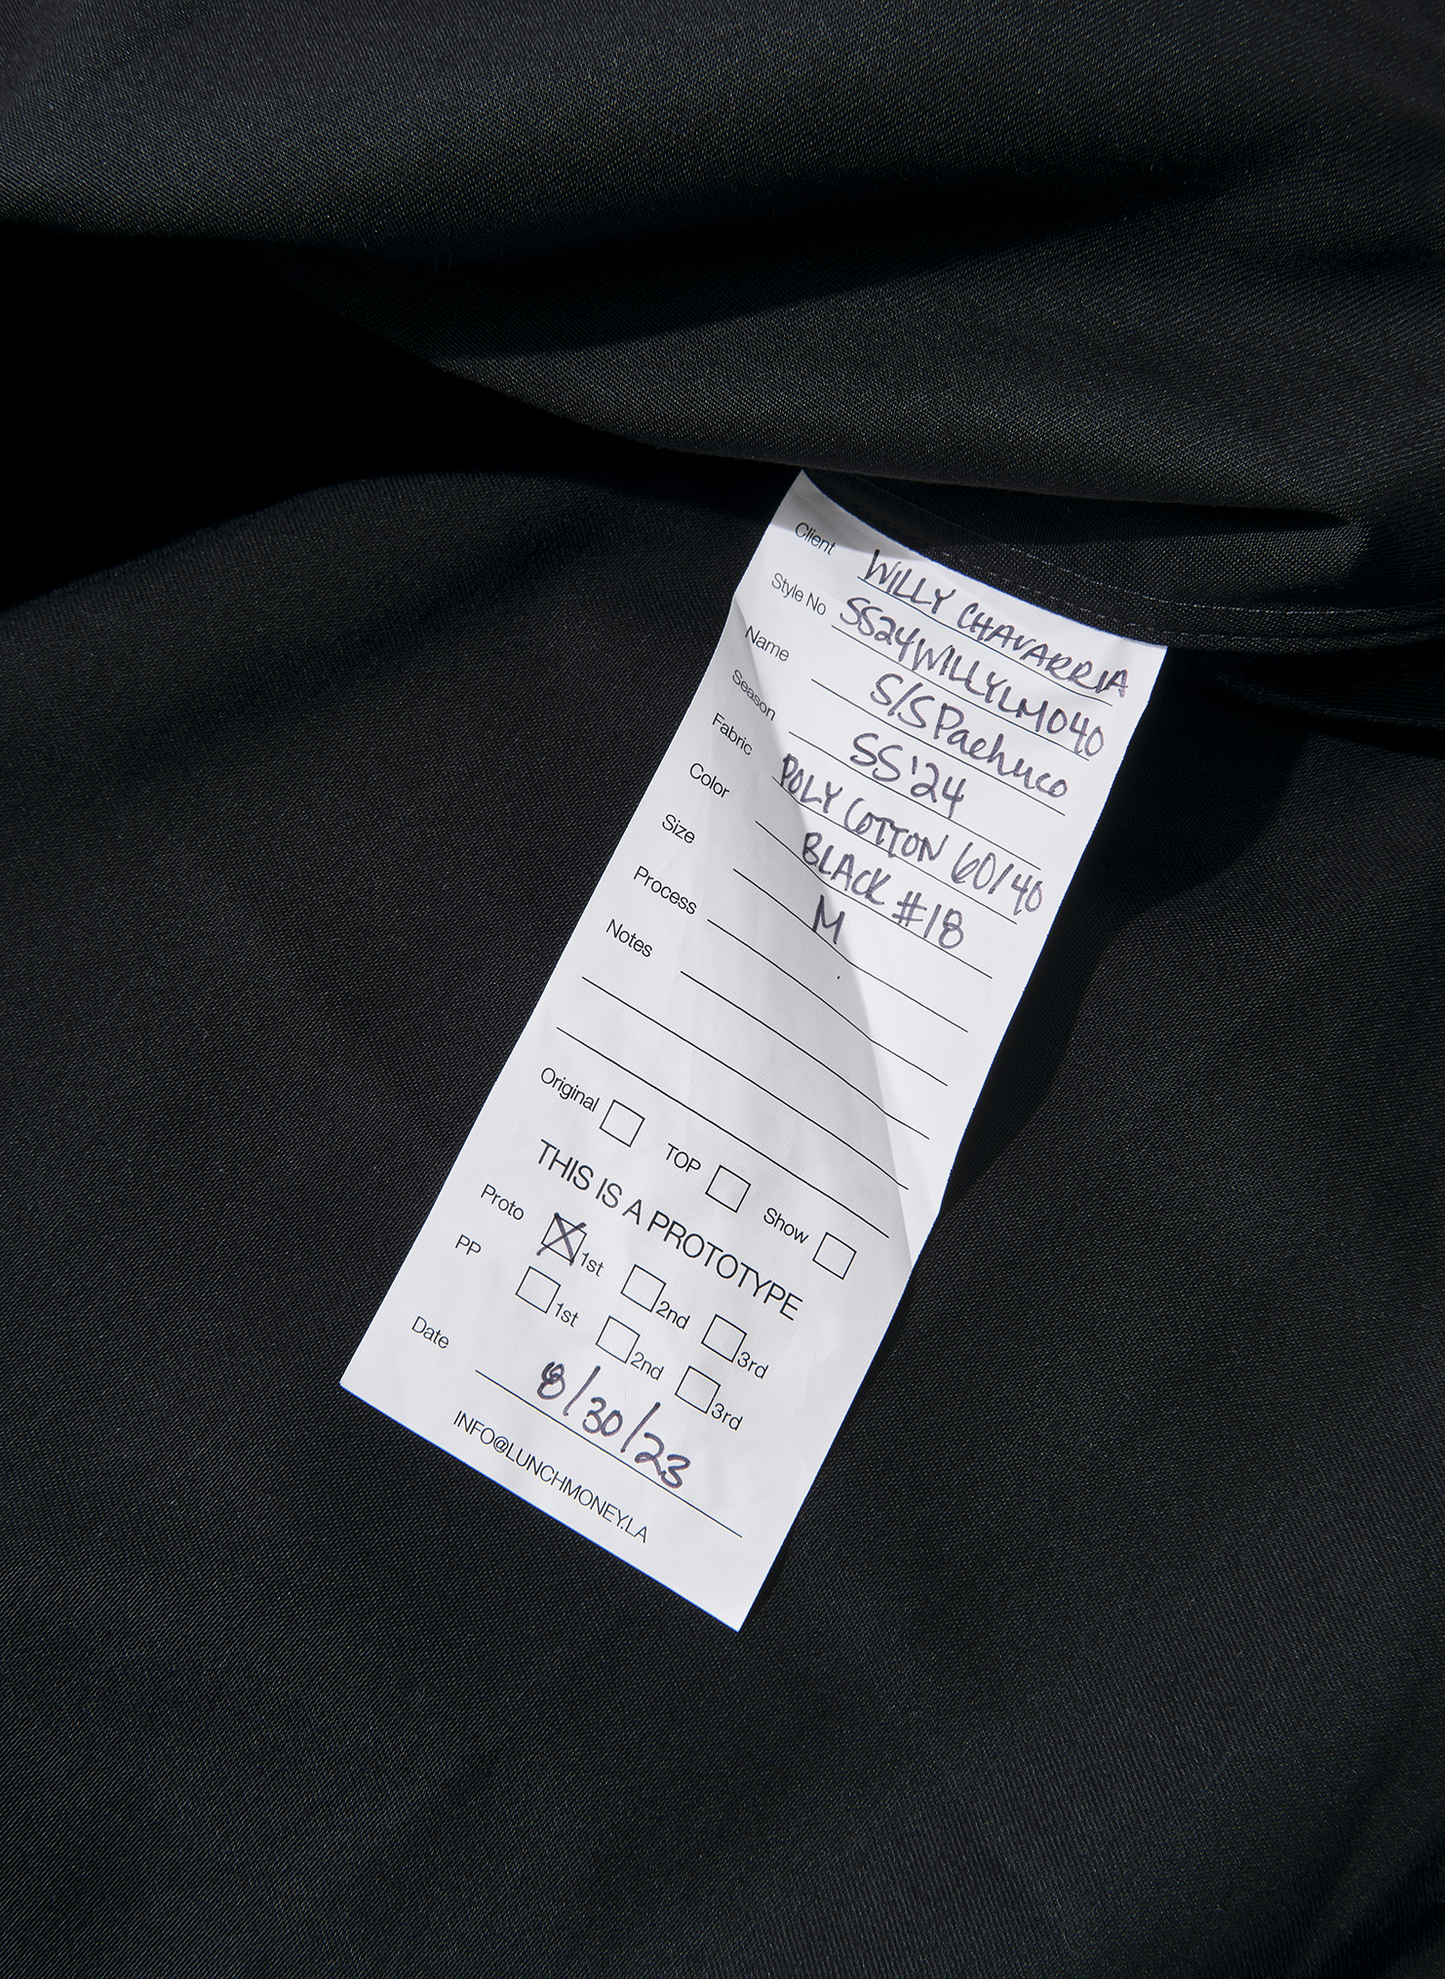 Client WILLY CHAVARRIA
Style No SS24WILLYLM040
Name S/S Pachuco
Season SS'24
Fabric POLY COTTON 60/40
Color BLACK #18
Size M
Process
Notes
Original TOP Show
THIS IS A PROTOTYPE
Proto 1st 2nd 3rd
PP 1st 2nd 3rd
Date 8/30/23
INFO@LUNCHMONEY.LA